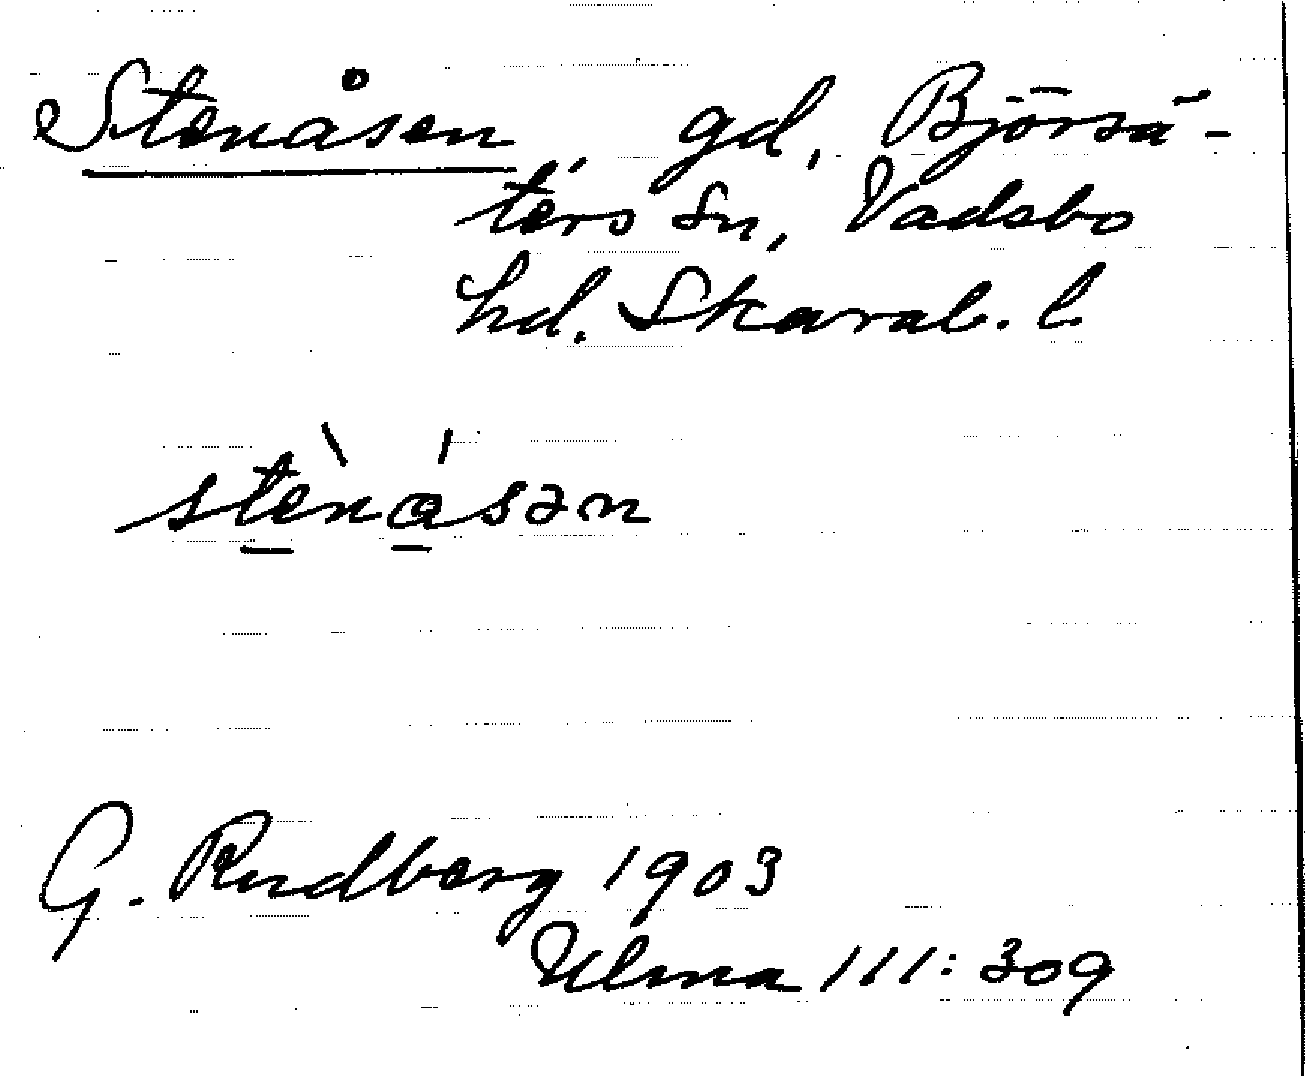 Stenåsen gd, Björsä-
ters sn, Vadsbo
hd. Skarab. l.
stenasən
G. Rudberg 1903
Ulma 111:309